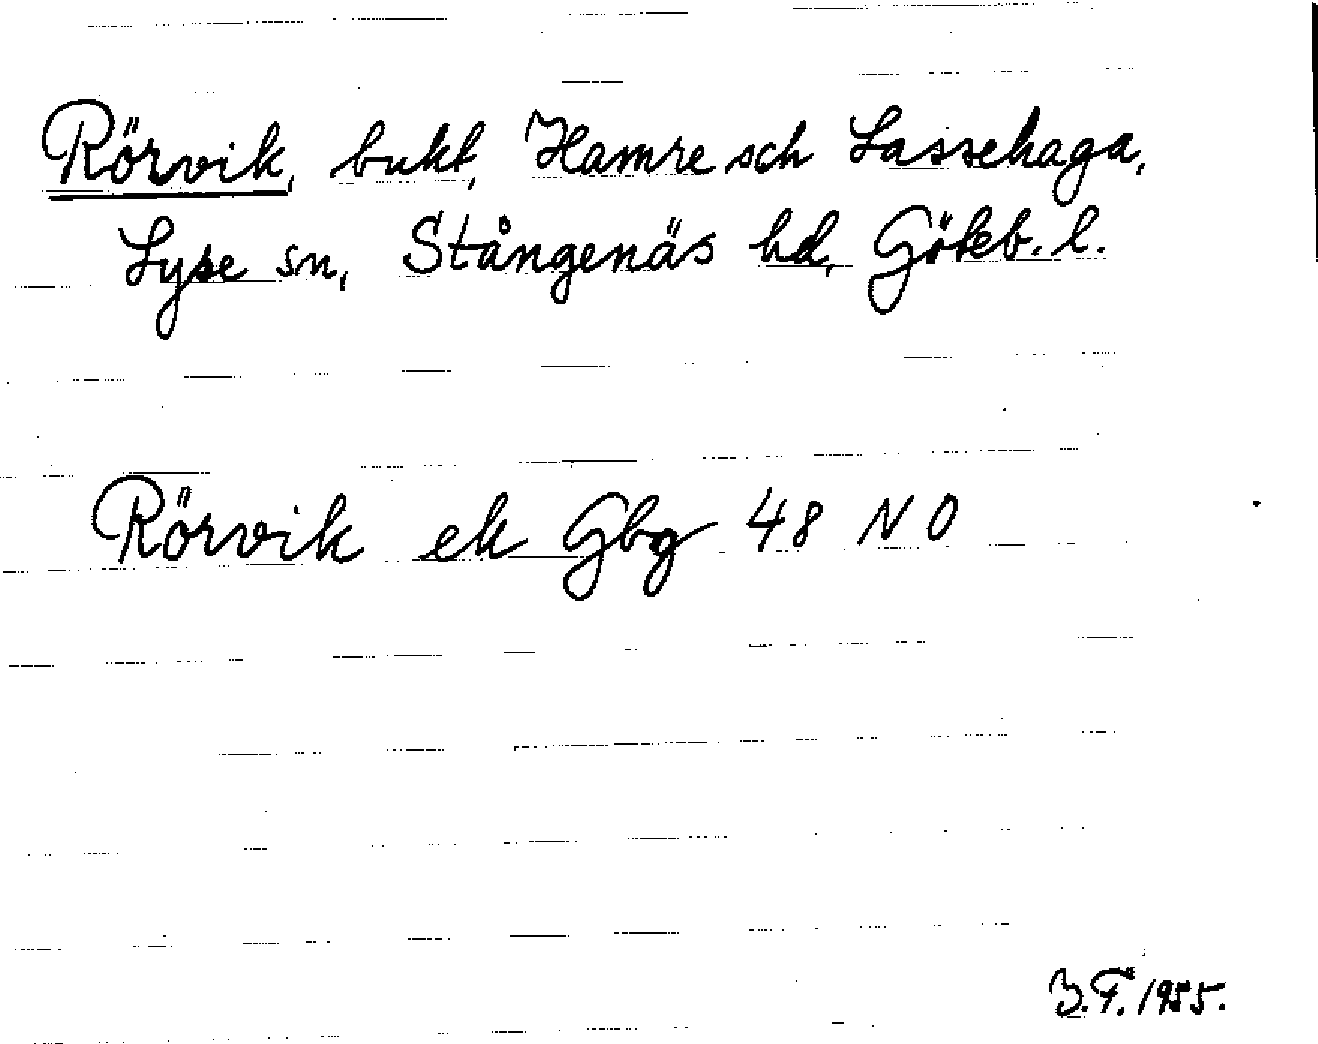 Rörvik, bukt, Hamre och Lassehaga,
Lyse sn, Stångenäs hd, Gökb. l.
Rörvik ek Gbg 48 NO
B.F. 1955.